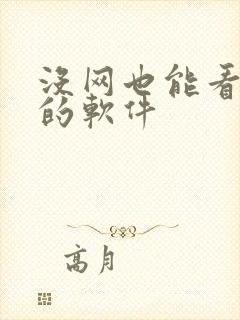 没网也能看
的軟件
高月